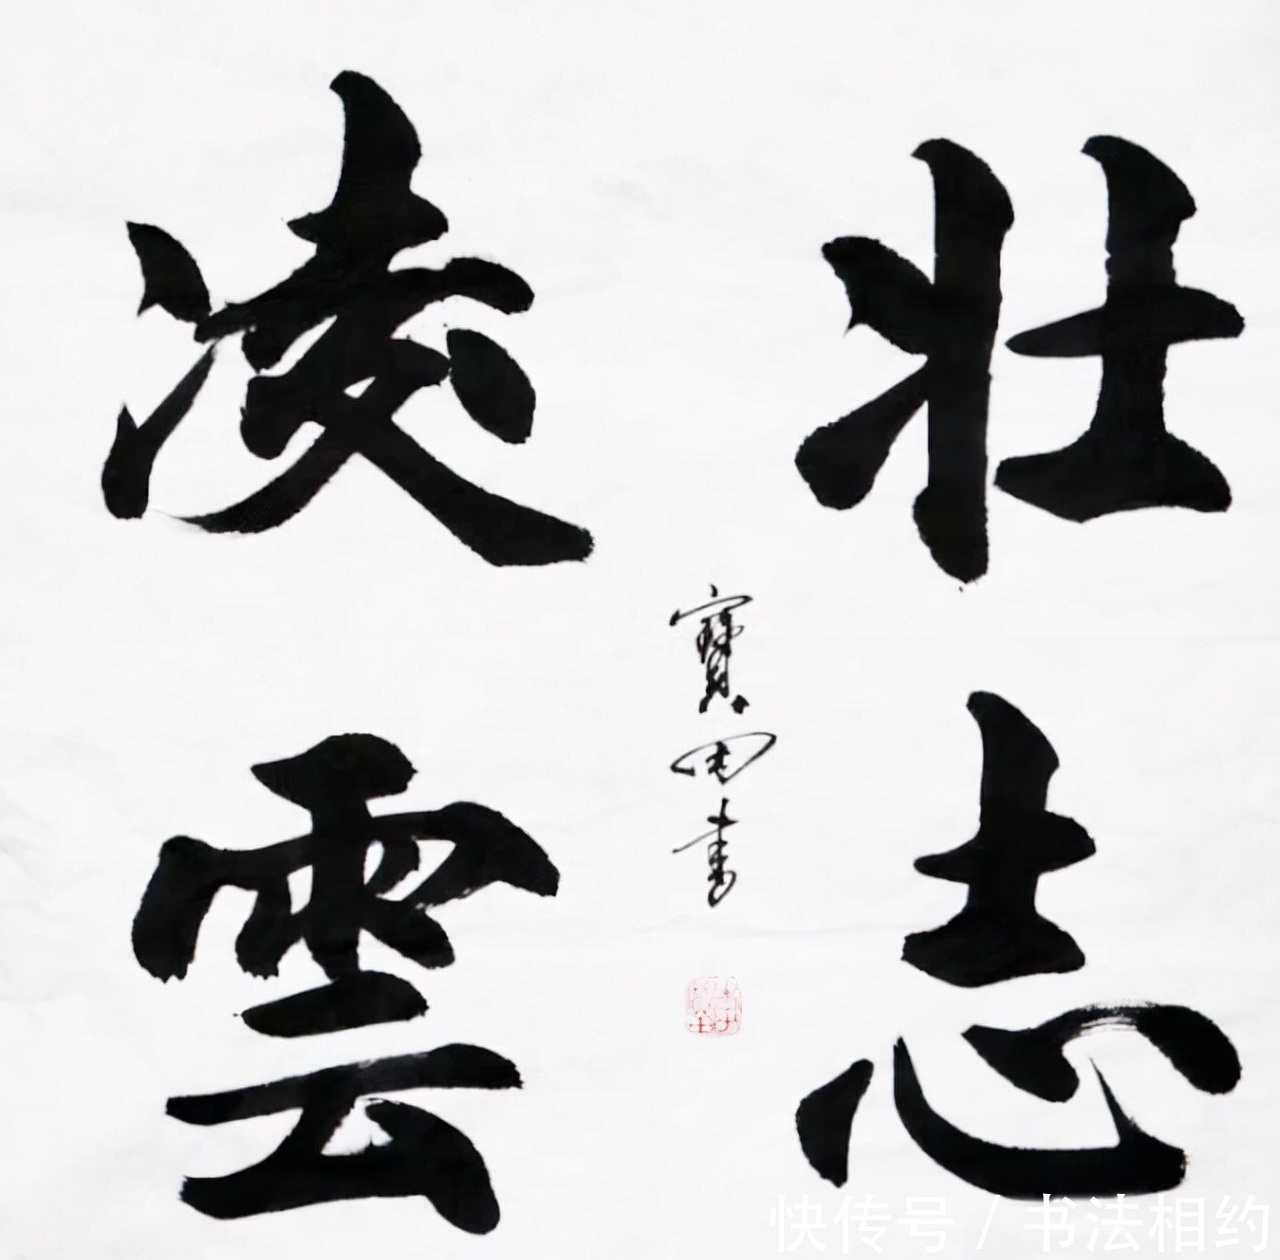 壮志
凌雲
寶田書
快传号 / 书法相约